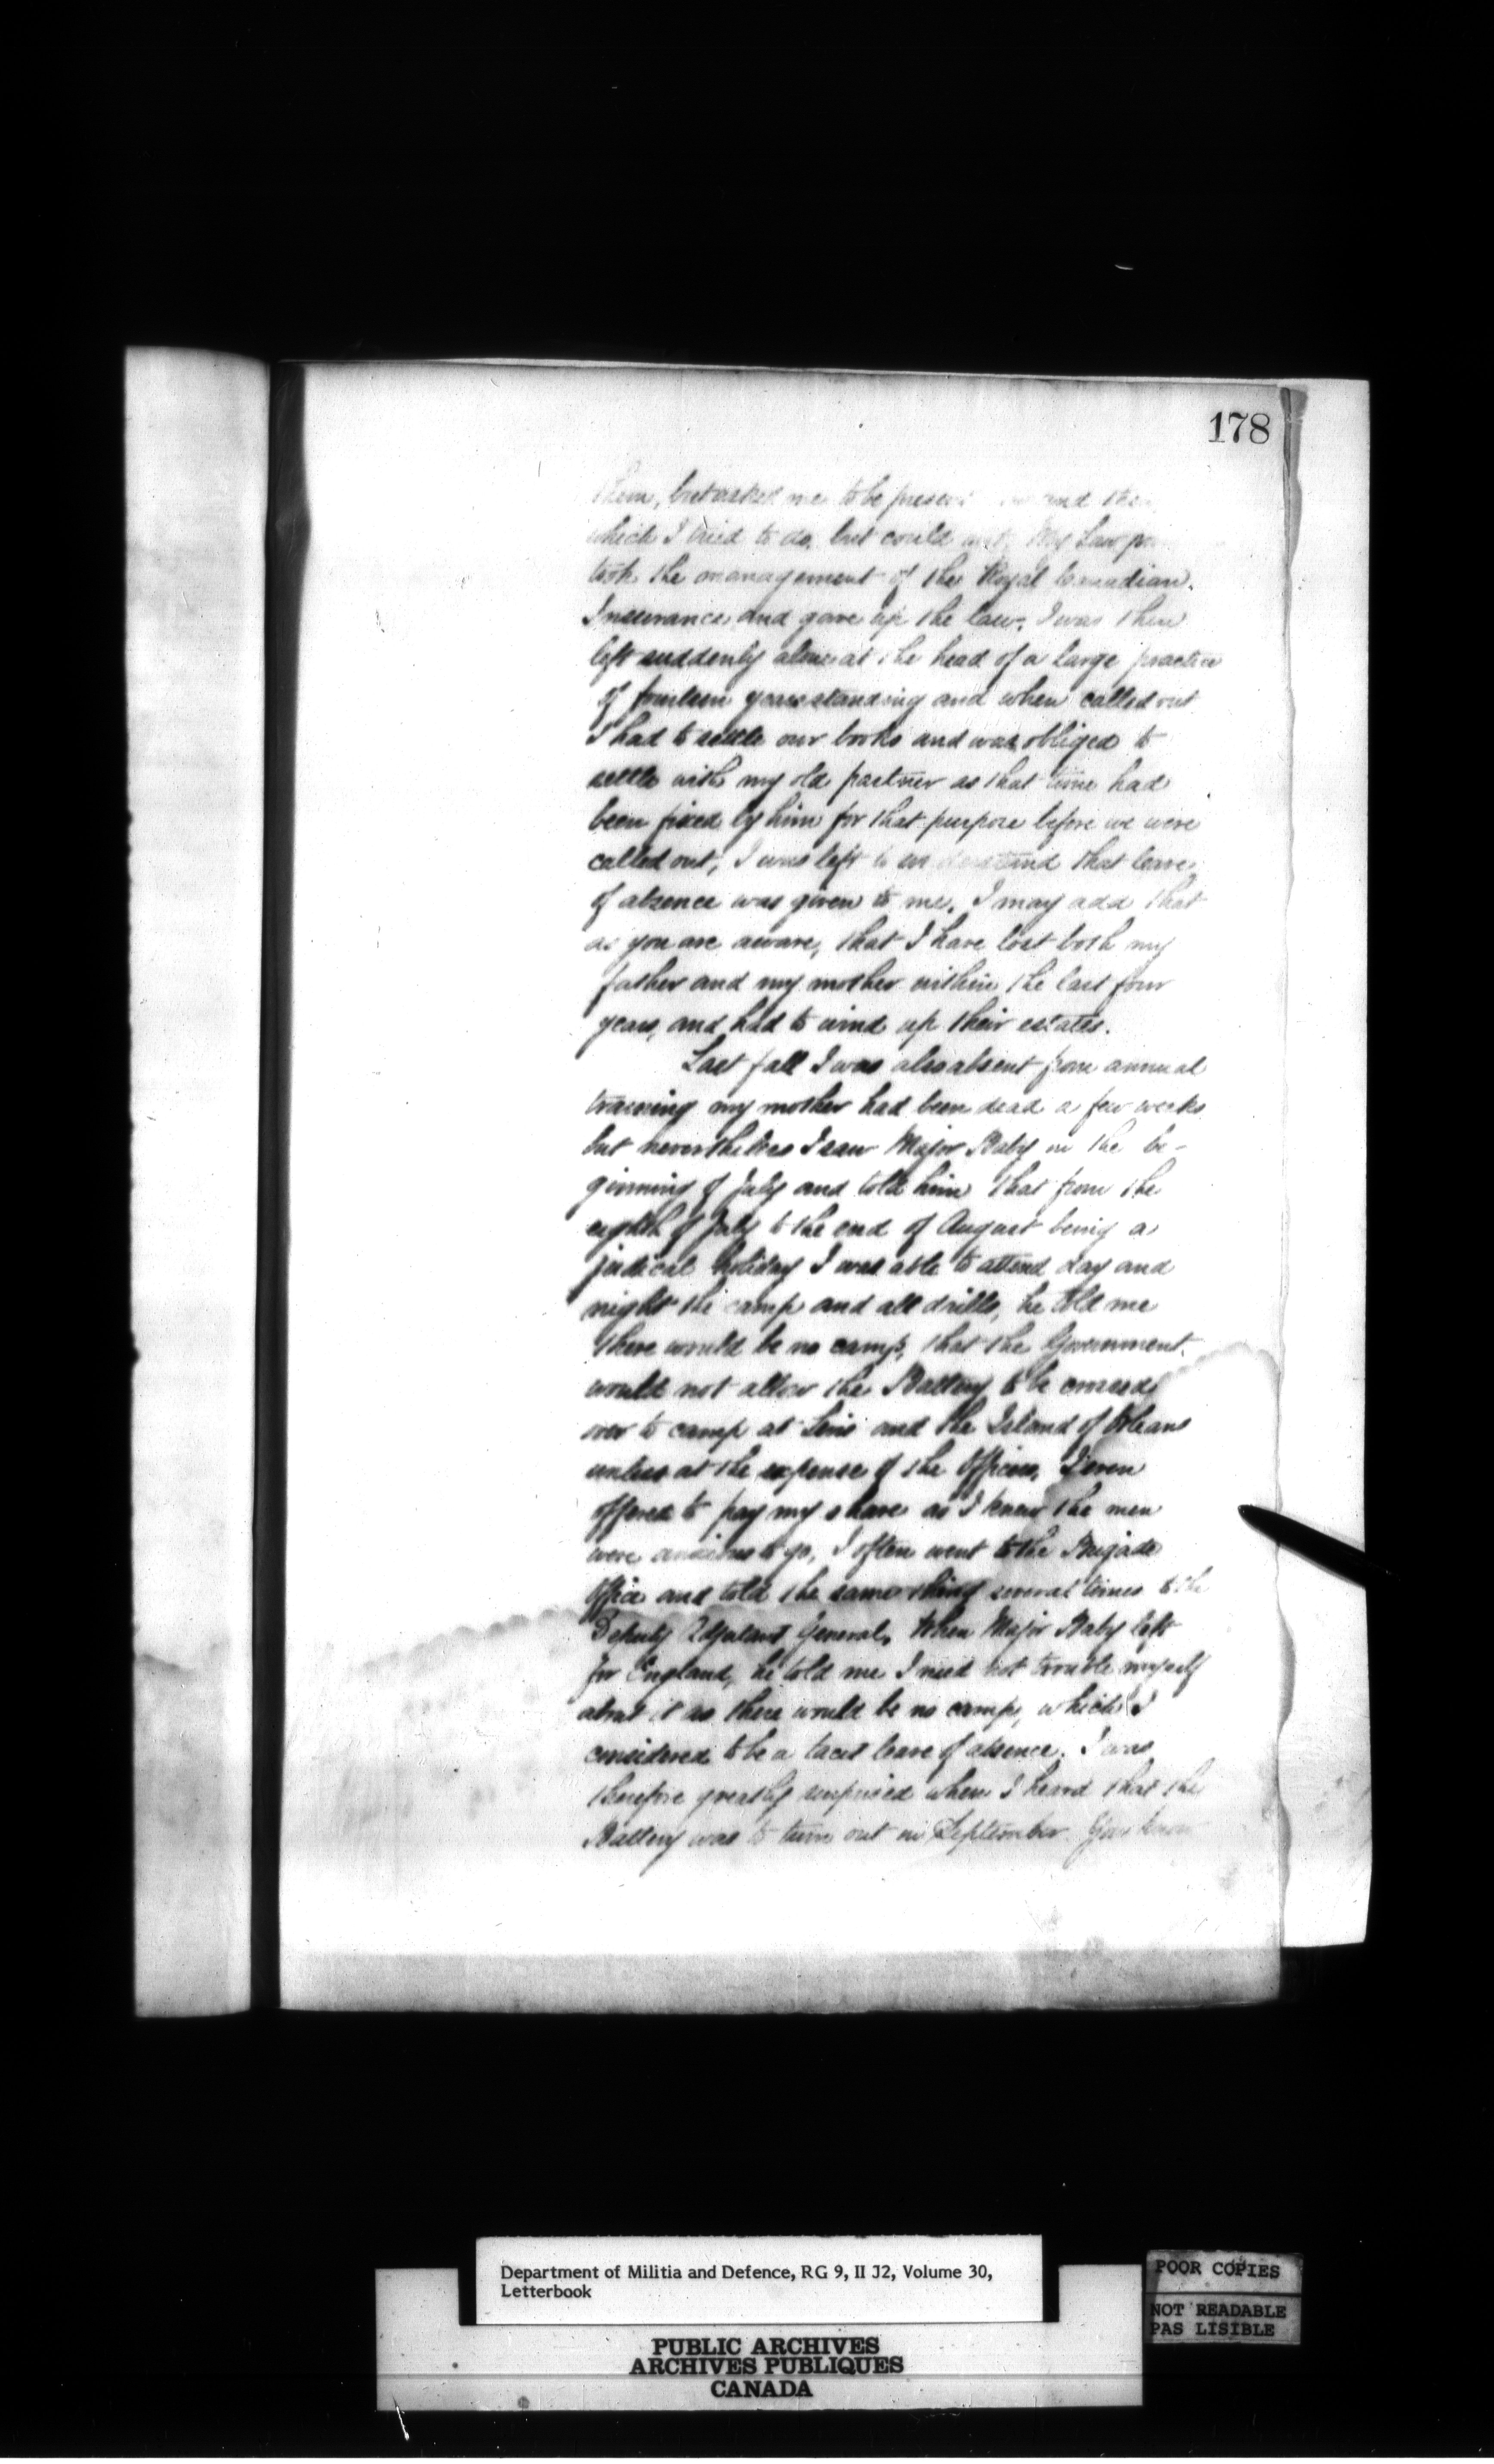 178
them, but asked me to be present and then
which I tried to do, but could not. My Law
took the management of the Royal Canadian
Insurance and gave up the law. I was then
left suddenly alone at the head of a large practice
of fourteen years standing and when called out
I had to settle our books and was obliged to
settle with my old partner as that time had
been fixed by him for that purpose before we were
called out, I was left to understand that leave
of absence was given to me. I may add that
as you are aware, that I have lost both my
father and my mother within the last four
years, and had to wind up their estates.
Last fall I was also absent from annual
training my mother had been dead a few weeks
but nevertheless I saw Major Baby in the be-
ginning of July and told him that from the
eighth of July to the end of August being a
judical holiday I was able to attend day and
night the camp and all drills, he told me
there would be no camp, that the Government
would not allow the Battery to be crossed
over to camp at Levis and the Island of Orleans
unless at the expense of the Officers, I even
offered to pay my share as I knew the men
were anxious to go, I often went to the Brigade
Office and told the same thing several times to the
Deputy Adjutant General. When Major Baby left
for England, he told me I need not trouble myself
about it as there would be no camp, which I
considered to be a tacit leave of absence. I was
therefore greatly surprised when I heard that the
Battery was to turn out in September. You know
Department of Militia and Defence, RG 9, II J2, Volume 30,
Letterbook
PUBLIC ARCHIVES
ARCHIVES PUBLIQUES
CANADA
POOR COPIES
NOT READABLE
PAS LISIBLE